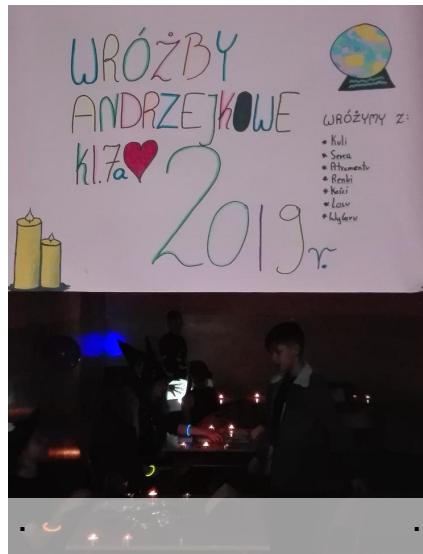 WRÓŻBY
ANDRZEJKOWE
kl.7a
2019r.
WRÓŻYMY Z:
Kuli
Serca
Atramentu
Renki
Kości
Losu
Wyboru